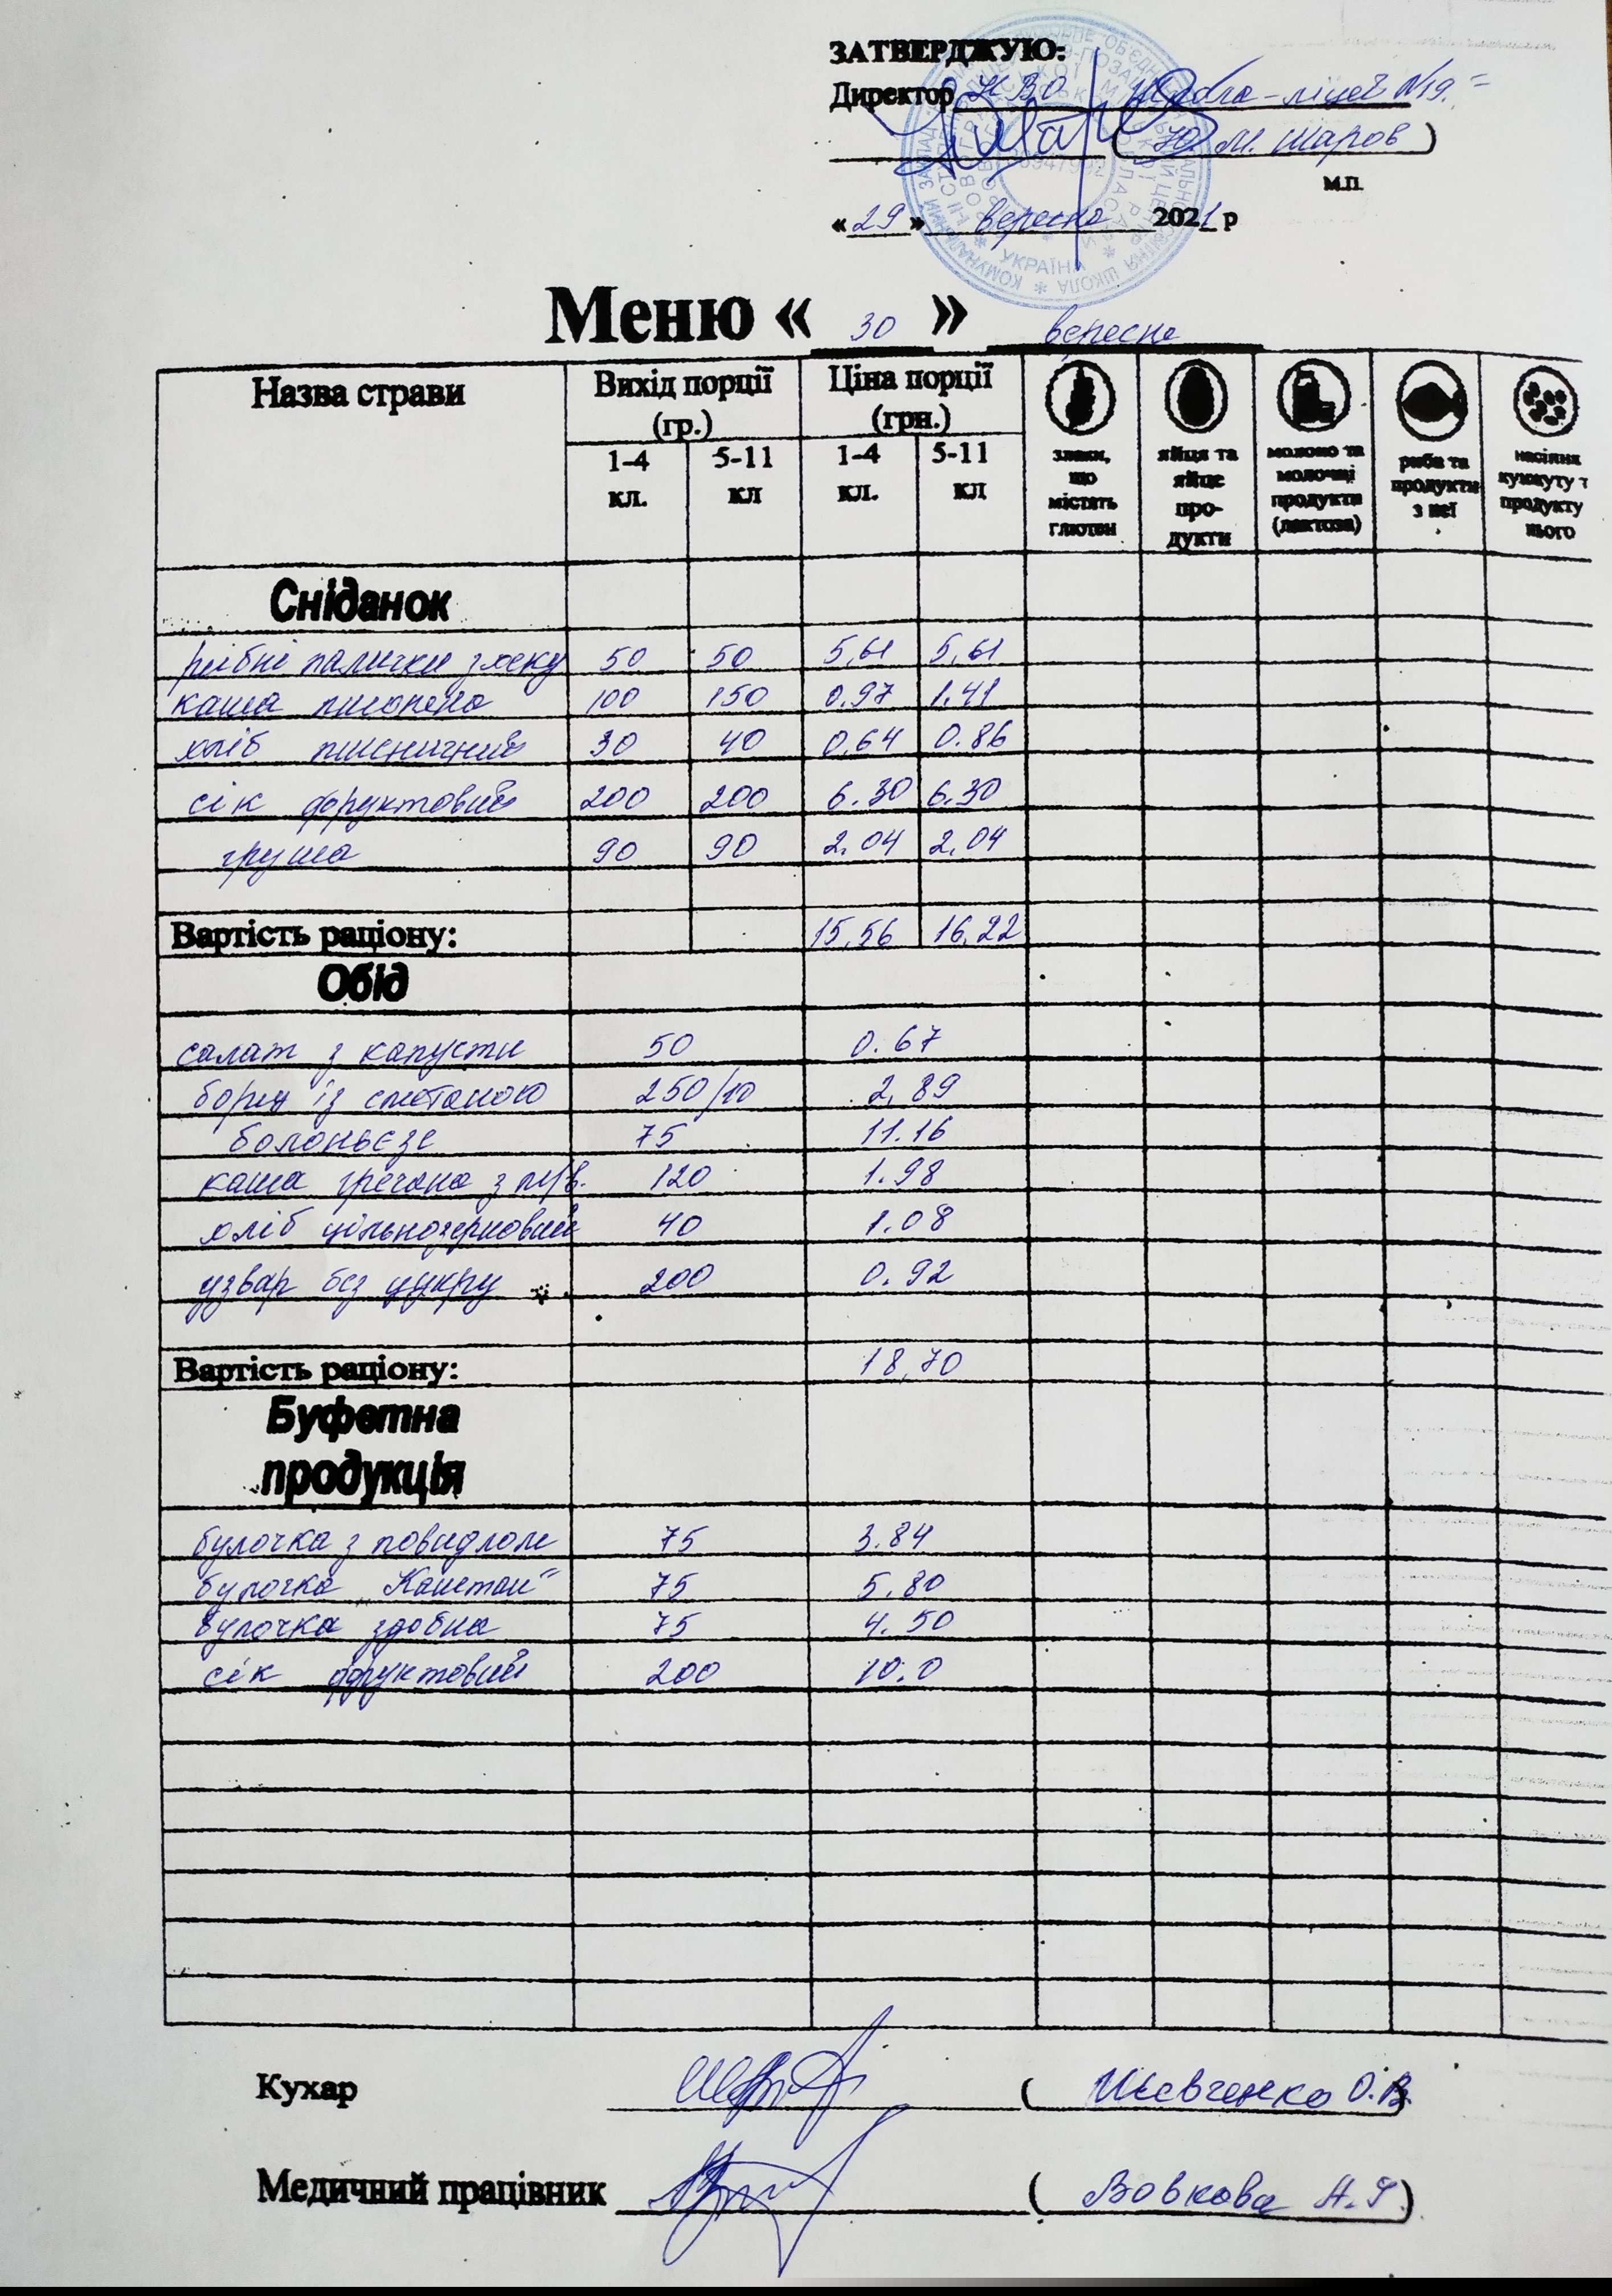 ЗАТВЕРДЖУЮ:
Директор НВО школа-ліцей №19
(Ю. М. Шаров)
м.п.
«29» вересня 2021 р
УКРАЇНА
Меню « 30 » вересня
Назва страви Вихід порції (гр.) Ціна порції (грн.)
1-4 кл. 5-11 кл 1-4 кл. 5-11 кл
злаки, що містять глютен
яйця та яйце про-дукти
молоко та молочні продукти (лактоза)
риба та продукти з неї
насіння кунжуту т продукту нього
Сніданок
рибні палички з хеку 50 50 5,61 5,61
каша пшоняна 100 150 0.97 1.41
хліб пшеничний 30 40 0,64 0.86
сік фруктовий 200 200 6.30 6.30
груша 90 90 2.04 2.04
Вартість раціону: 15,56 16,22
Обід
салат з капусти 50 0.67
борщ із сметаною 250/10 2,89
болоньєзе 75 11.16
каша гречана з м/в. 120 1.98
хліб цільнозерновий 40 1.08
узвар без цукру 200 0.92
Вартість раціону: 18,70
Буфетна
продукція
булочка з повидлом 75 3.84
булочка „Каштан" 75 5.80
булочка здобна 75 4.50
сік фруктовий 200 10.0
Кухар ( Шевченко О.В. )
Медичний працівник ( Вовкова )